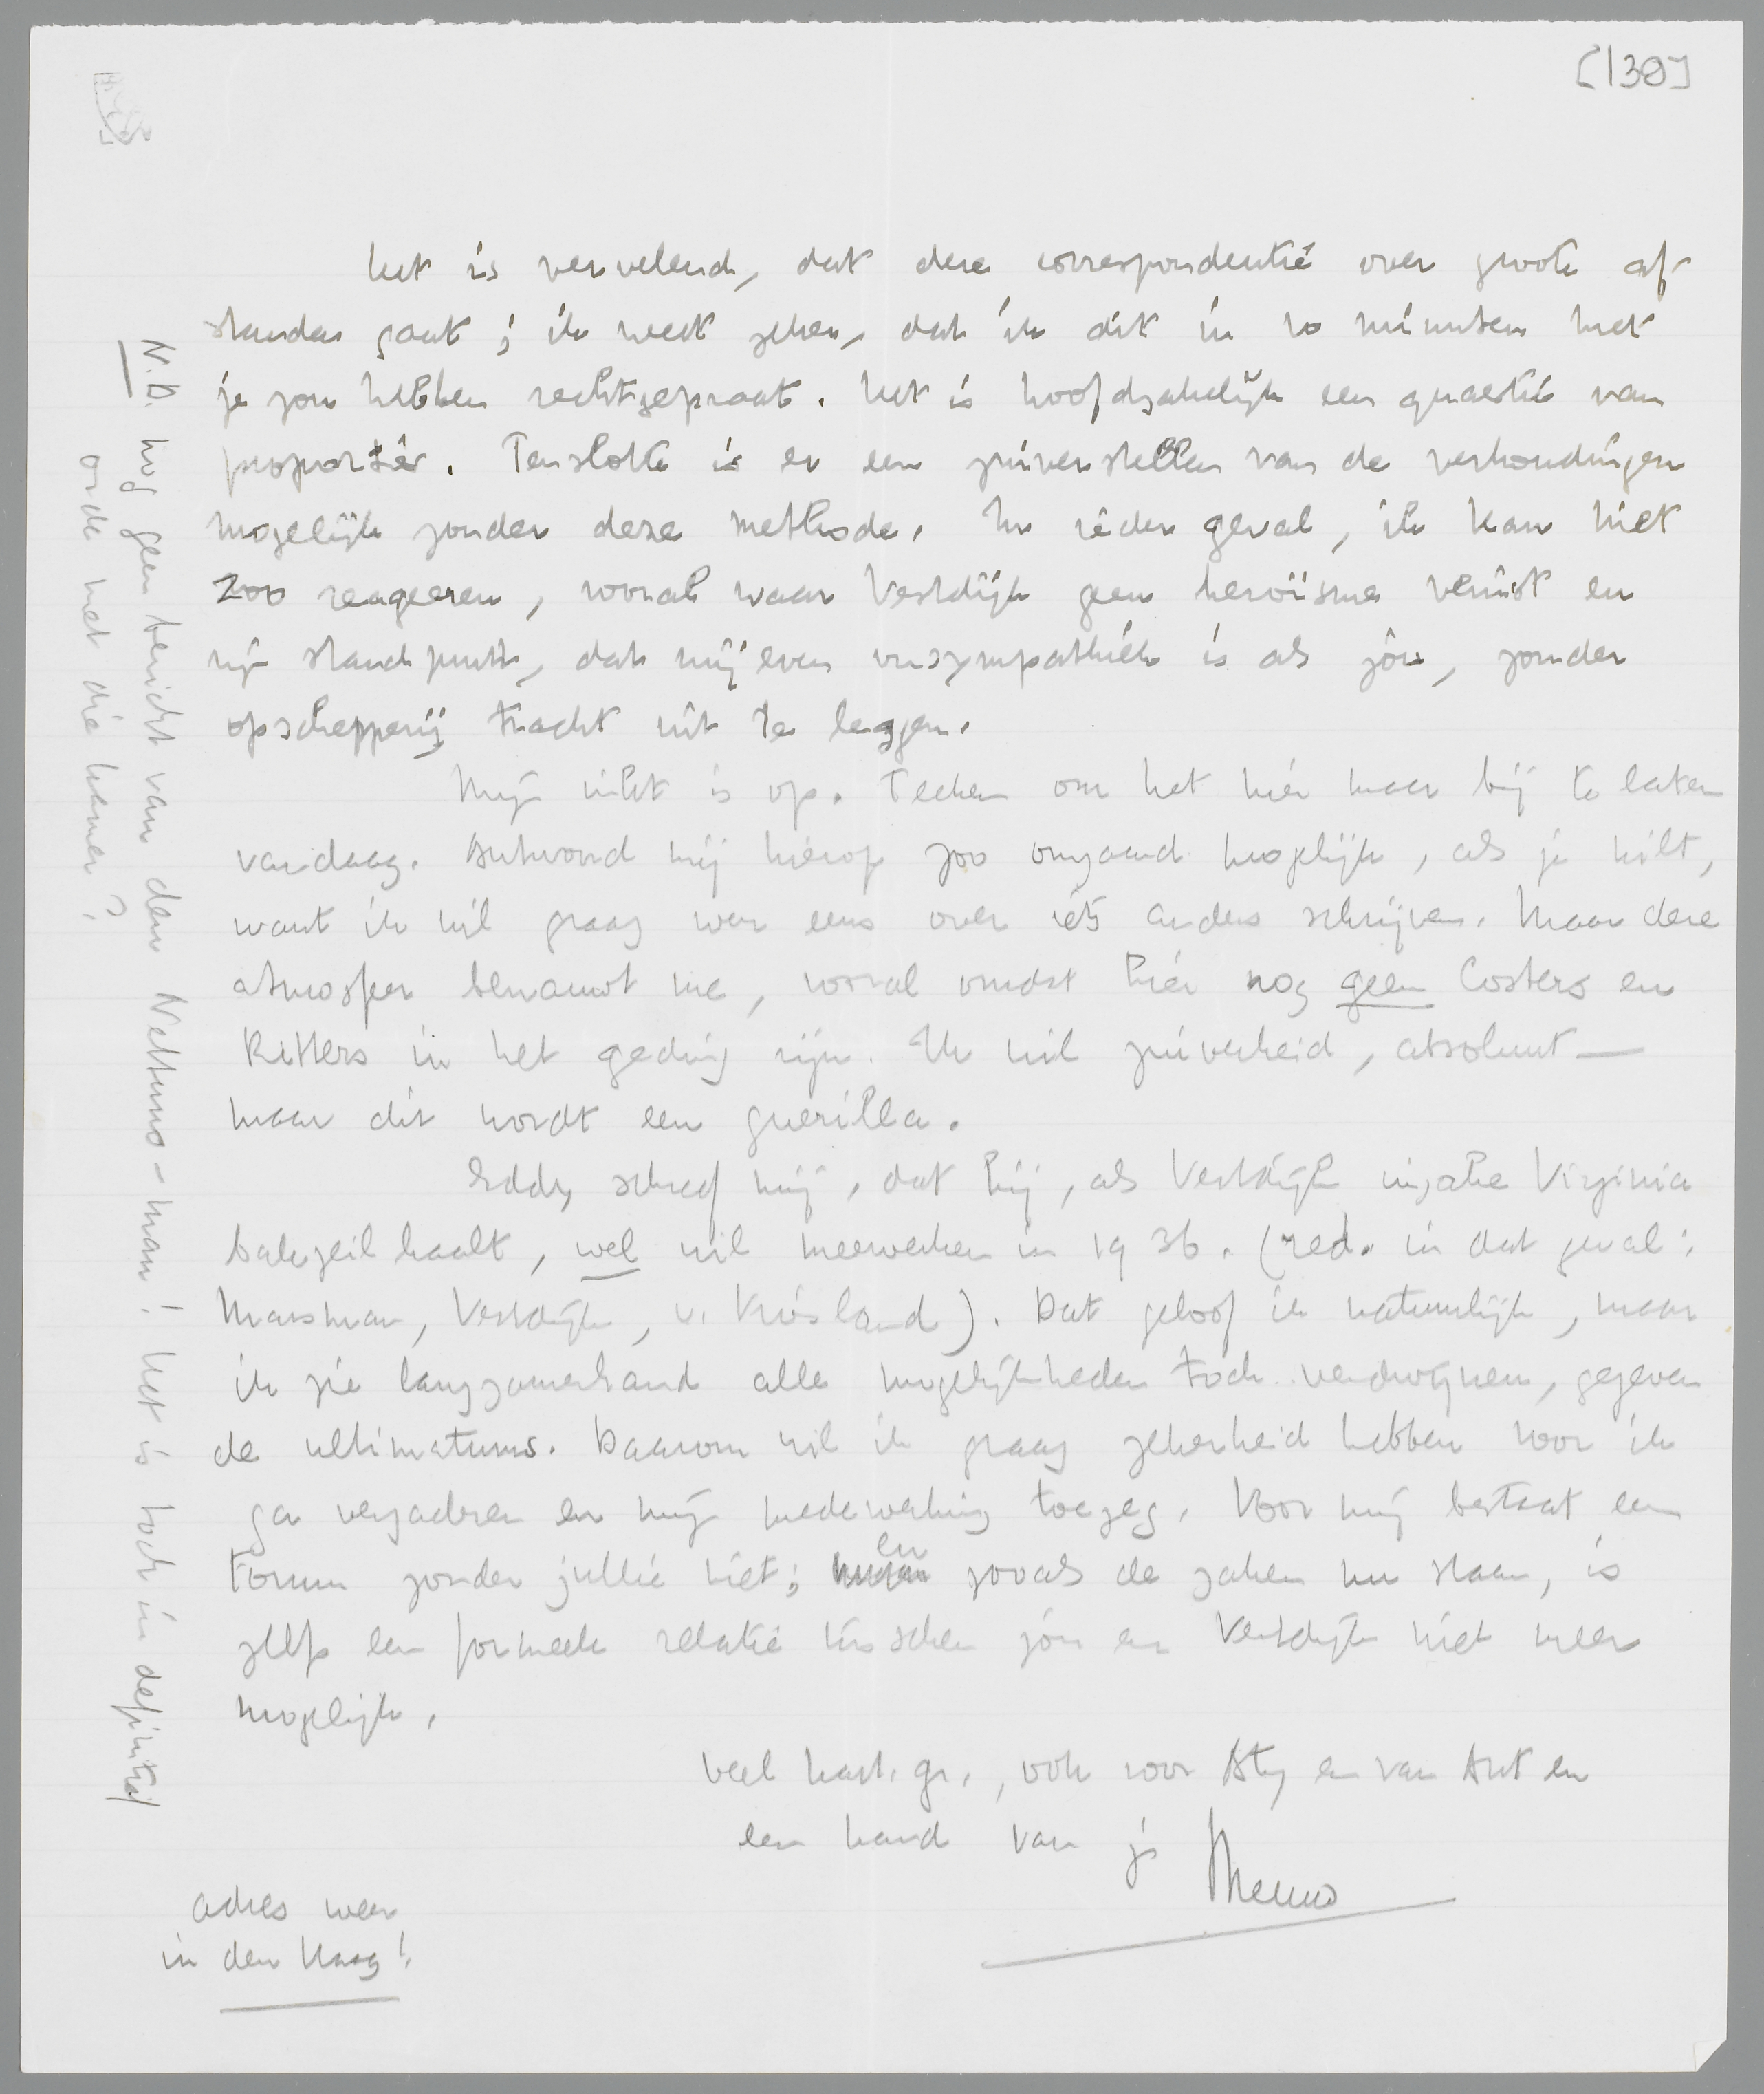 [130]
Het is vervelend, dat deze correspondentie over groote af-
standen gaat; ik weet zeker, dat ik dit in 10 minuten met
je zou hebben rechtgepraat. Het is hoofdzakelijk een quaestie van
proporties. Tenslotte is er een zuiver stellen van de verhoudingen
mogelijk zonder deze methode. In ieder geval, ik kan niet
zoo reageeren, vooral waar Vestdijk geen heroïsme veinst en
zijn standpunt, dat mij even onsympathiek is als jou, zonder
opschepperij tracht uit te leggen.
Mijn inkt is op. Teeken om het hier maar bij te laten
vandaag. Antwoord mij hierop zoo omgaand mogelijk, als je wilt,
want ik wil graag weer eens over iets anders schrijven. Maar deze
atmosfeer benauwt me, vooral omdat hier nog geen Costers en
Ritters in het geding zijn. Ik wil zuiverheid, absoluut —
maar dit wordt een guerilla.
Eddy schreef mij, dat hij, als Vestdijk inzake Virginia
bakzeil haalt, wel wil meewerken in 1936. (red. in dat geval:
Marsman, Vestdijk, v. Vriesland). Dat geloof ik natuurlijk, maar
ik zie langzamerhand alle mogelijkheden toch verdwijnen, gegeven
de ultimatums. Daarom wil ik graag zekerheid hebben voor ik
ga vergaderen en mijn medewerking toezeg. Voor mij bestaat een
Forum zonder jullie niet; en zooals de zaken nu staan, is
zelfs een formeele relatie tusschen jou en Vestdijk niet meer
mogelijk.
Veel hart. gr., ook voor Aty en van Ant en
een hand van je
Menno
adres weer
in den Haag!
N.B. Nog geen bericht van den Nettuno-man! Het is toch in definitief
orde met die kamer?